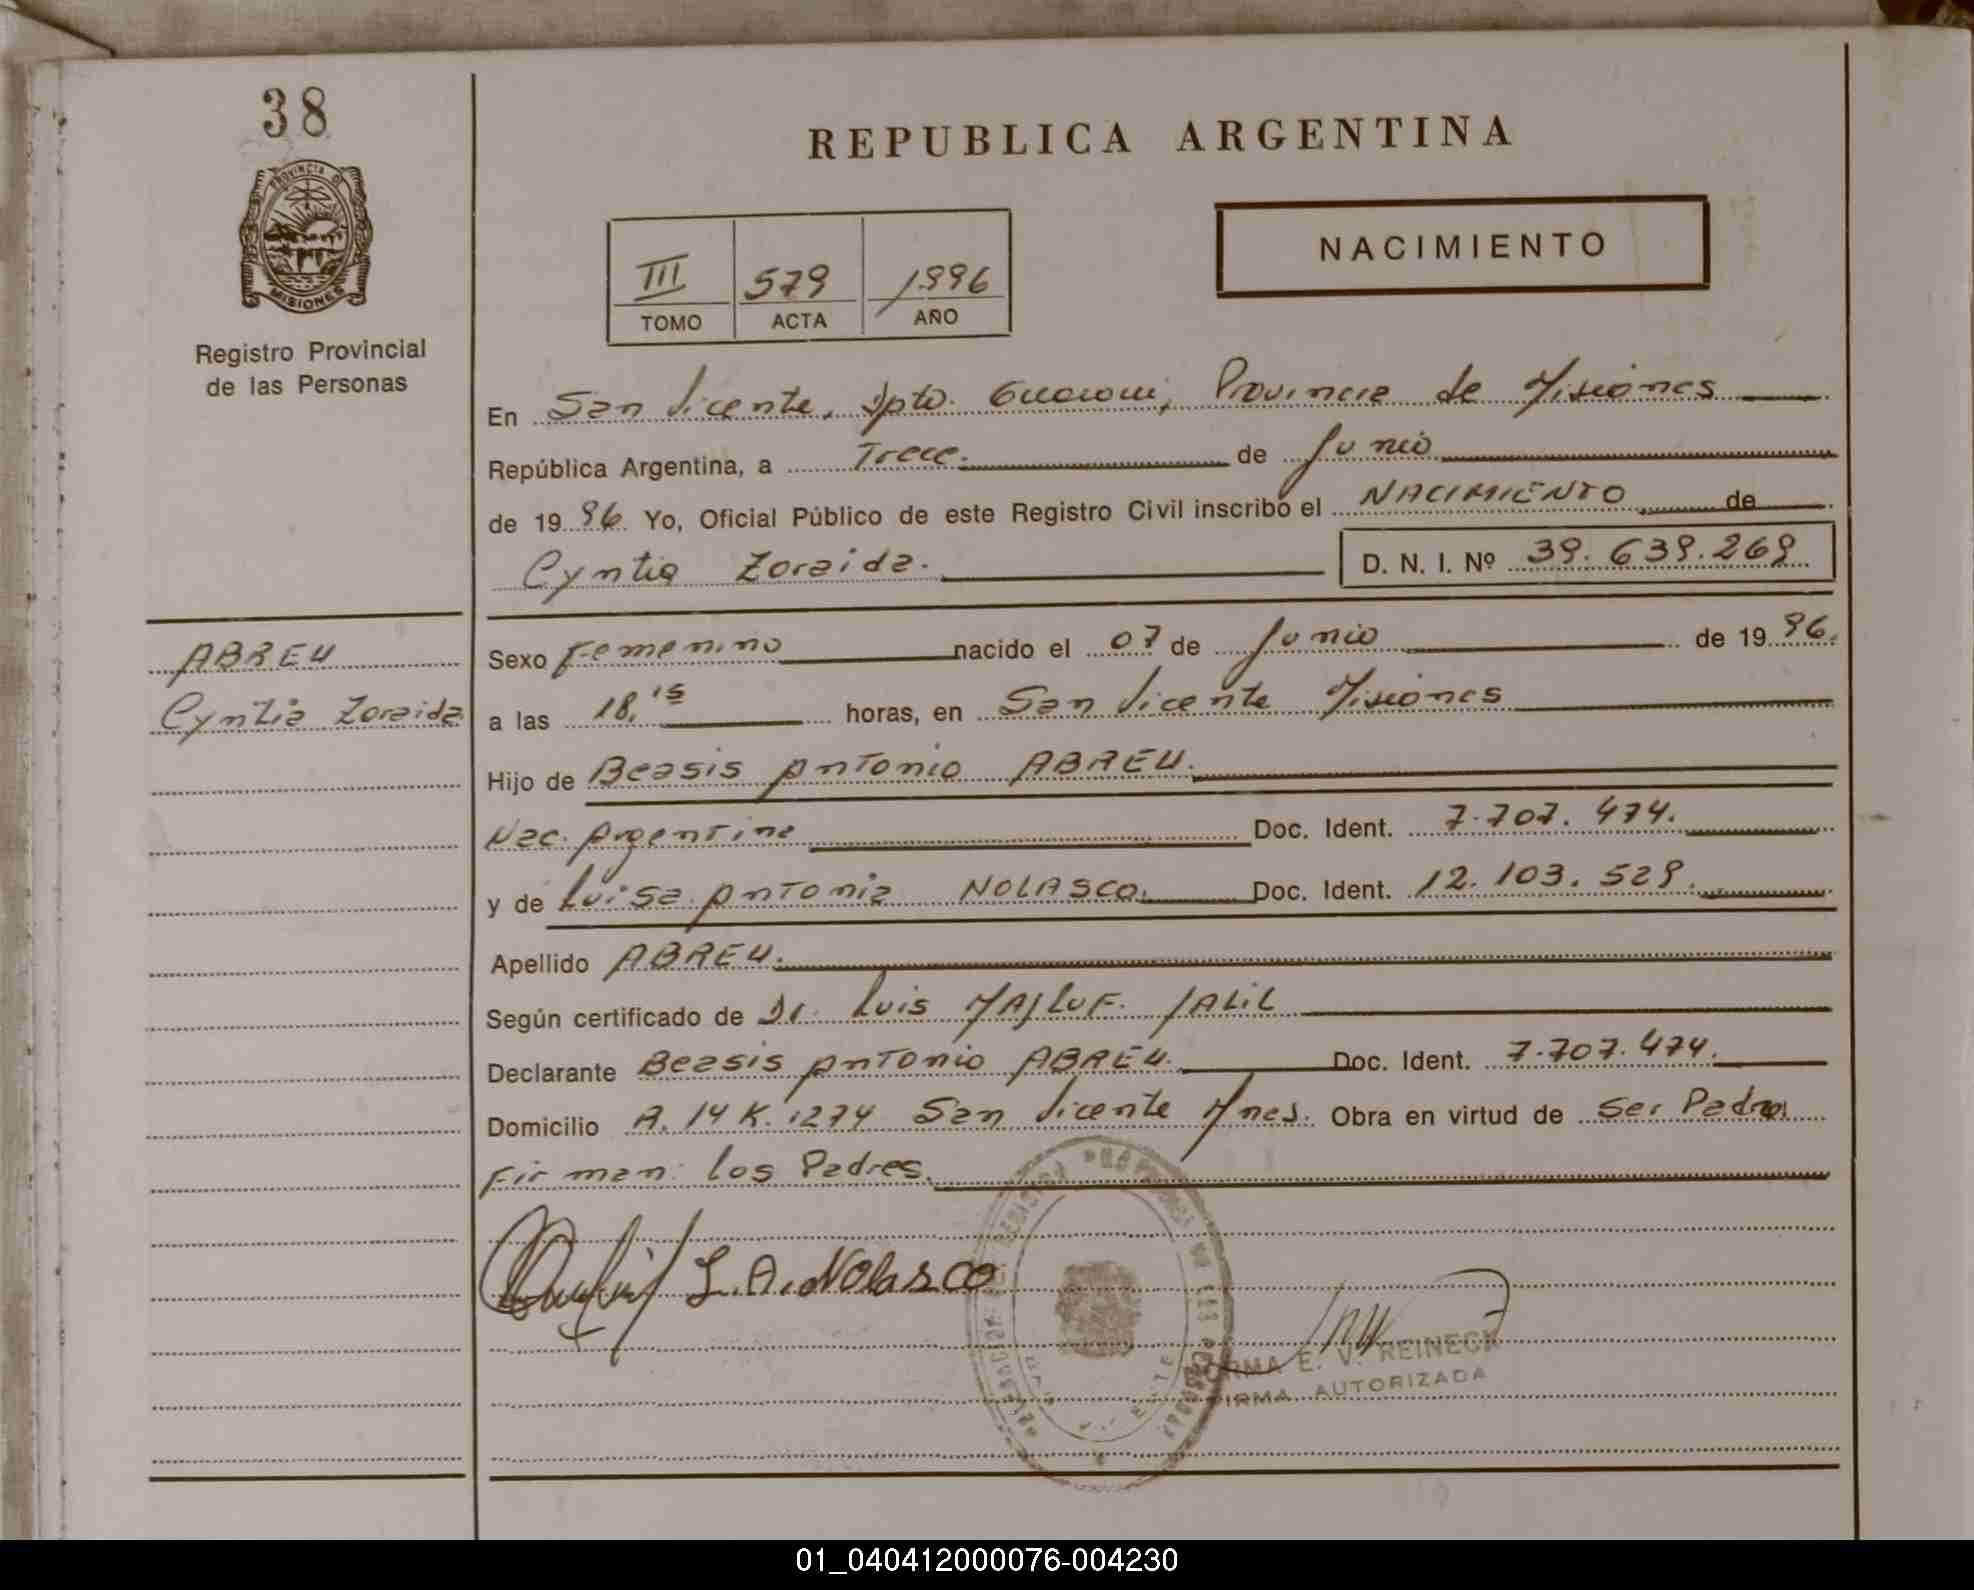 38
PROVINCIA DE
MISIONES
Registro Provincial
de las Personas
REPUBLICA ARGENTINA
NACIMIENTO
III 579 1996
TOMO ACTA AÑO
En San Vicente, Dpto. Guarani, Provincia de Misiones
República Argentina, a Trece. de Junio
de 1996 Yo, Oficial Público de este Registro Civil inscribo el NACIMIENTO de
Cyntia Zoraida. D. N. I. Nº 39.639.269
ABREU
Cyntia Zoraida
Sexo Femenino nacido el 07 de Junio de 1996.
a las 18,15 horas, en San Vicente Misiones
Hijo de Beasis Antonio ABREU.
Nac. Argentina Doc. Ident. 7.707.474.
y de Luisa Antonia NOLASCO. Doc. Ident. 12.103.529.
Apellido ABREU.
Según certificado de Dr. Luis MAJLUF JALIL
Declarante Beasis Antonio ABREU. Doc. Ident. 7.707.474.
Domicilio A. 14 K. 1274 San Vicente Mnes. Obra en virtud de Ser Padre.
Firman: los Padres.
L.A. Nolasco
E. V. REINECK
FIRMA AUTORIZADA
01_040412000076-004230